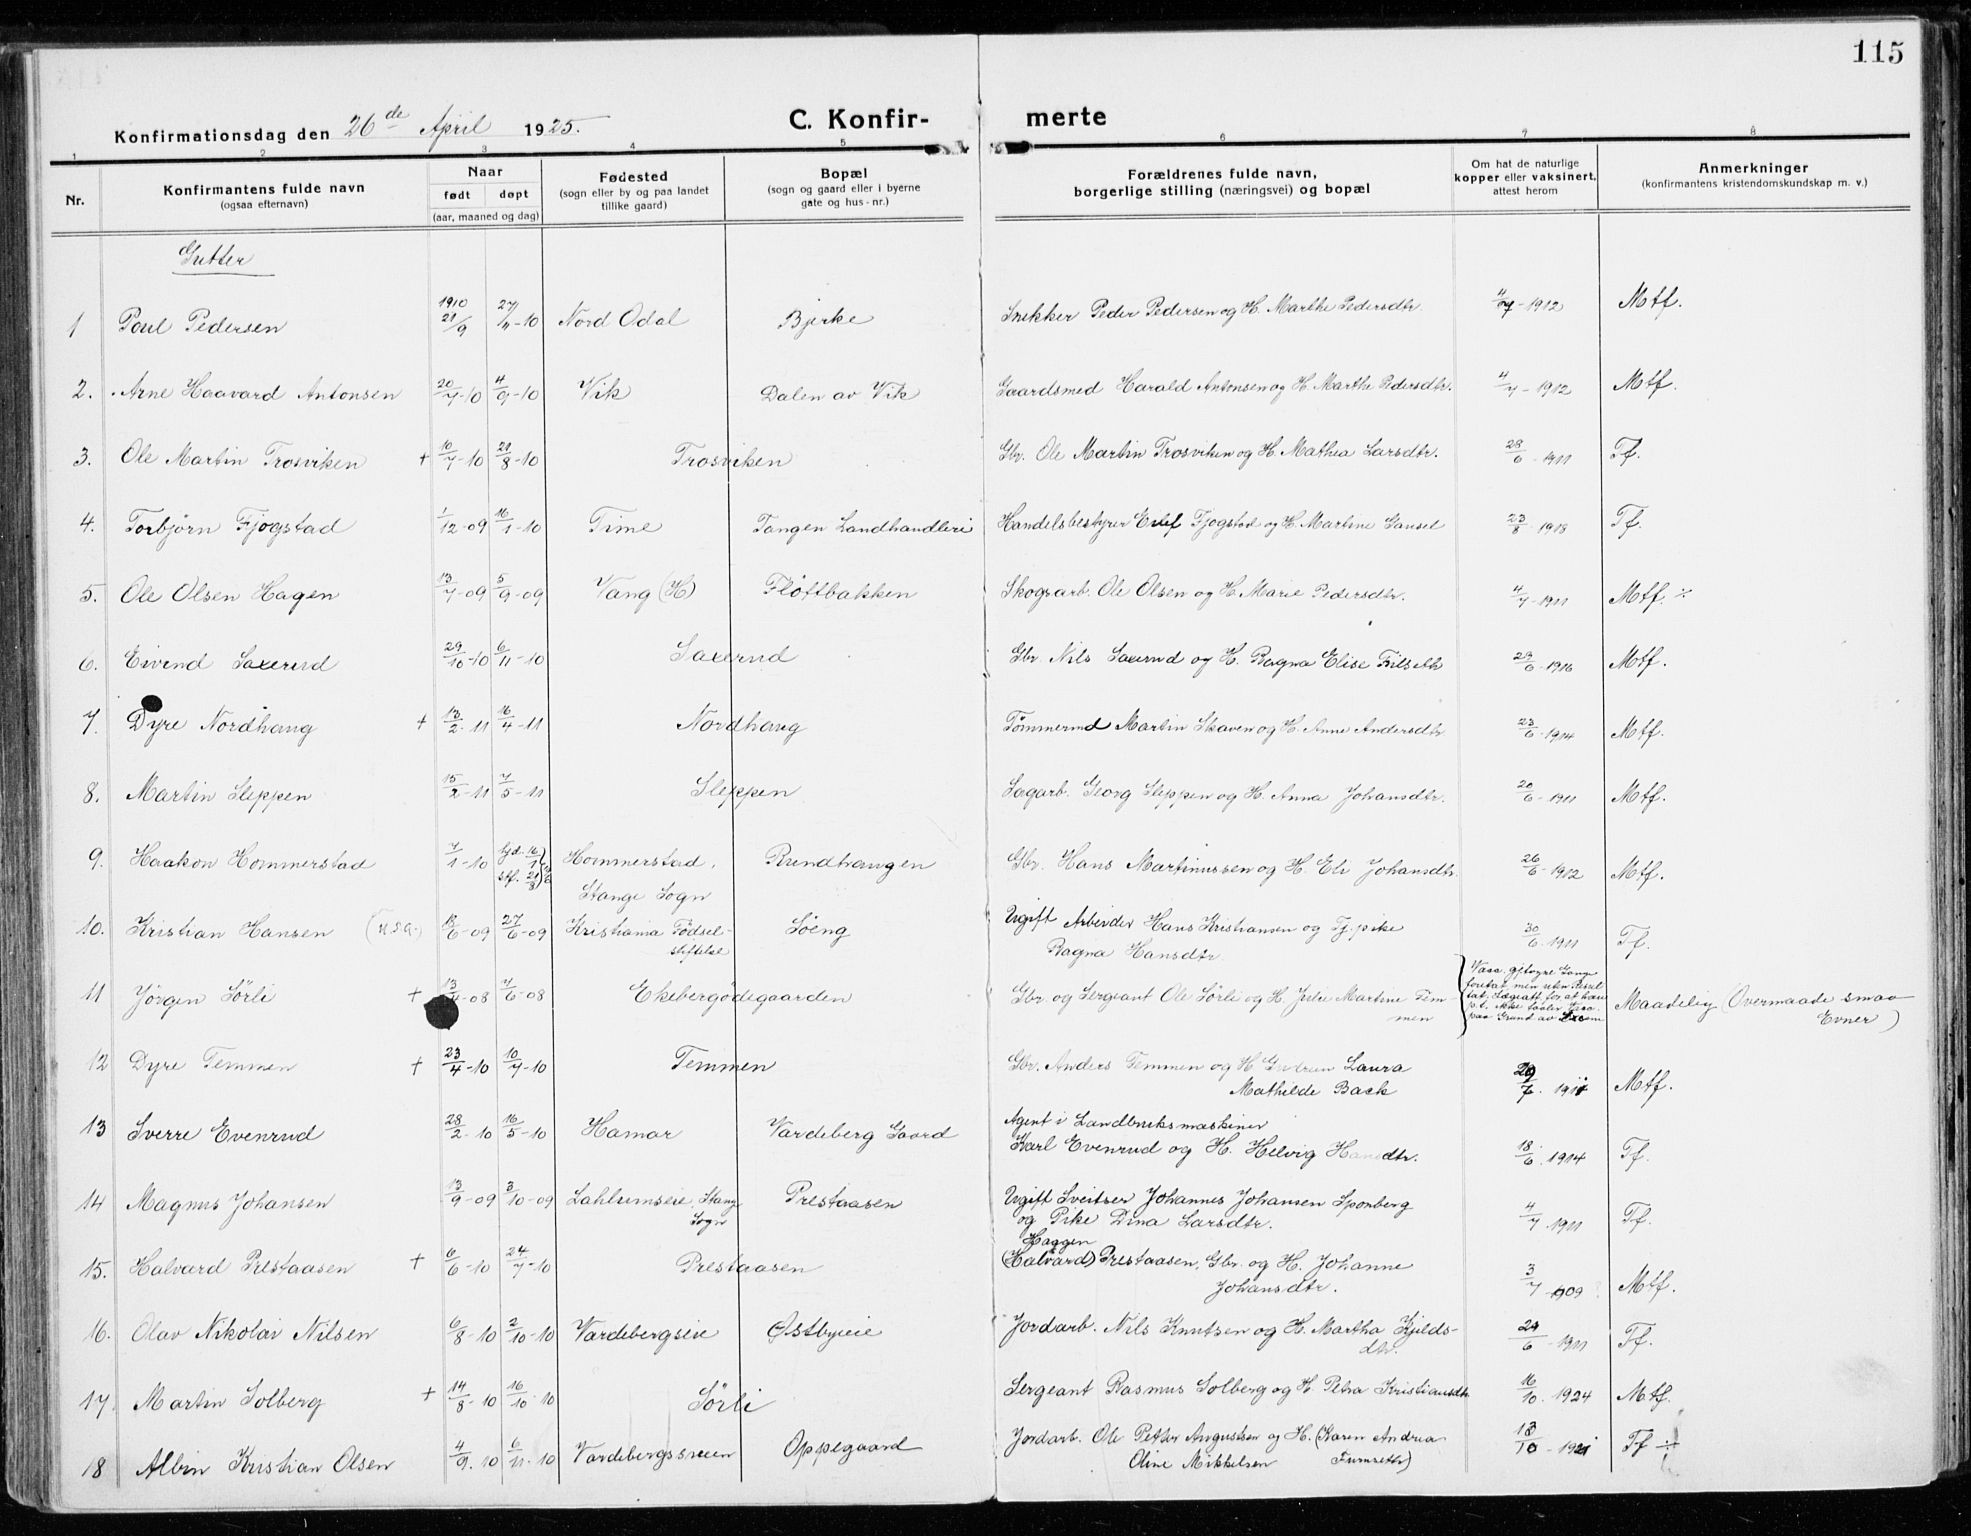 115
Konfirmationsdag den 26de April 1925. C. Konfir- merte
1 2 3 4 5 6 7 8
Nr. Konfirmantens fulde navn (ogsaa efternavn) Naar født døpt (aar, maaned og dag) Fødested (sogn eller by og paa landet tillike gaard) Bopæl (sogn og gaard eller i byerne gate og hus-nr.) Forældrenes fulde navn, borgerlige stilling (næringsvei) og bopæl Om hat de naturlige kopper eller vaksinert, attest herom Anmerkninger (konfirmantens kristendomskundskap m. v.)
Gutter
1 Poul Pedersen 1910 21/9 27/4-10 Nord Odal Bjerke Snekker Peder Pedersen og H. Marthe Pedersdtr. 4/7-1912 Mtf.
2. Arne Haavard Antonsen 20/7-10 4/9-10 Vik Dalen av Vik Gaardsmed Harald Antonsen og H. Marthe Pedersdtr. 4/7-1912 Mtf.
3. Ole Martin Trosviken + 10/7-10 21/8-10 Trosviken Gbr. Ole Martin Trosviken og H. Mathea Larsdtr. 28/6-1911 Tf.
4. Torbjörn Fjogstad 1/12-09 16/1-10 Time Tangen Landhandleri Handelsbestyrer Fjogstad og H. Martine Gausel 23/8 1918 Tf.
5. Ole Olsen Hagen 13/7-09 5/9-09 Vang (H) Flöttbakken Skogsarb. Ole Olsen og H. Marie Pedersdtr. 4/7-1911 Mtf. ÷
6. Eivend Saxerud 29/10-10 6/11-10 Saxerud Gbr. Nils Saxerud og H. Ragna Elise Filseth 29/6-1916 Mtf.
7. Dyre Nordhaug + 13/2-11 16/4-11 Nordhaug Tömmermd Martin Skaven og H. Anne Andersdtr 23/6-1914 Mtf.
8. Martin Sleppen 15/2-11 7/5-11 Sleppen Sagarb. Georg Sleppen og H. Anna Johansdtr. 20/6-1911 Mtf.
9. Haakon Hommerstad 7/1-10 hjd. 16/1 stf. 21/8 Hommerstad, Rundhaugen Gbr. Hans Martinussen og H. Eli Johansdtr. 26/6-1912 Mtf.
Stange Sogn
10. Kristian Hansen 13/6-09 27/6-09 Kristiania Födsels- Söeng Ugift Arbeider Hans Kristiansen og Tj.pike 30/6 1911 Tf.
stiftelse Ragna Hansdtr.
11 Jörgen Sörli + 13/4-08 7/6-08 Ekebergödegaarden Gbr. og Sergeant Ole Sörli og H. Julie Martine Tem- Maadelig (Overmaade smaa
men Evner)
12 Dyre Temmen + 23/4-10 10/7-10 Temmen Gbr. Anders Temmen og H Gudrun Laura Mtf.
Mathilde Back
13 Sverre Evenrud 28/2-10 16/5-10 Hamar Vardeberg Gaard Agent i Landbruksmaskiner
Karl Evenrud og H. Helvig Hansdtr. 18/6 1914 Tf.
14 Magnus Johansen 13/9-09 3/10-09 Lahlumseie, Stange Prestaasen Ugift Sveitser Johannes Johansen Sponberg 4/7 1911 Tf.
Sogn og Pike Dina Larsdtr.
15. Halvard Prestaasen + 6/6-10 24/7-10 Prestaasen (Halvard) Haagen Prestaasen, Gbr. og H. Johanne 3/7-1909 Mtf.
Johansdtr.
16. Olav Nikolai Nilsen 6/8-10 2/10-10 Vardebergseie Østbyeie Jordarb. Nils Knutsen og H. Martha Kjelds- 6-1911 Tf.
dtr.
17. Martin Solberg + 14/8-10 16/10-10 Sörli Sergeant Rasmus Solberg og H. Petra Kristiansdtr 16/10 1924 Mtf.
18 Albin Kristian Olsen 4/9-10 6/11-10 Vardebergssveen Oppegaard Jordarb. Ole Petter Augustsen og H. (Karen Andrea 13/10-1921 Tf ÷
Oline Mikkelsen Furuseth)